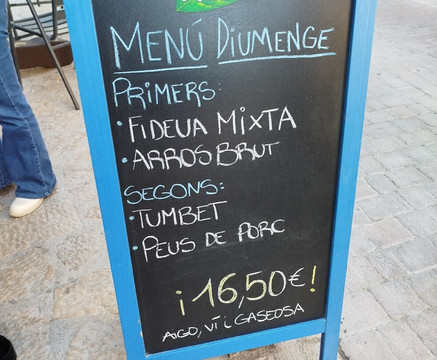 MENÚ DIUMENGE
PRIMERS:
• FIDEUA MIXTA
• ARROS BRUT
SEGONS:
• TUMBET
• PEUS DE PORC
¡16,50€!
AIGO, VÍ i GASEOSA